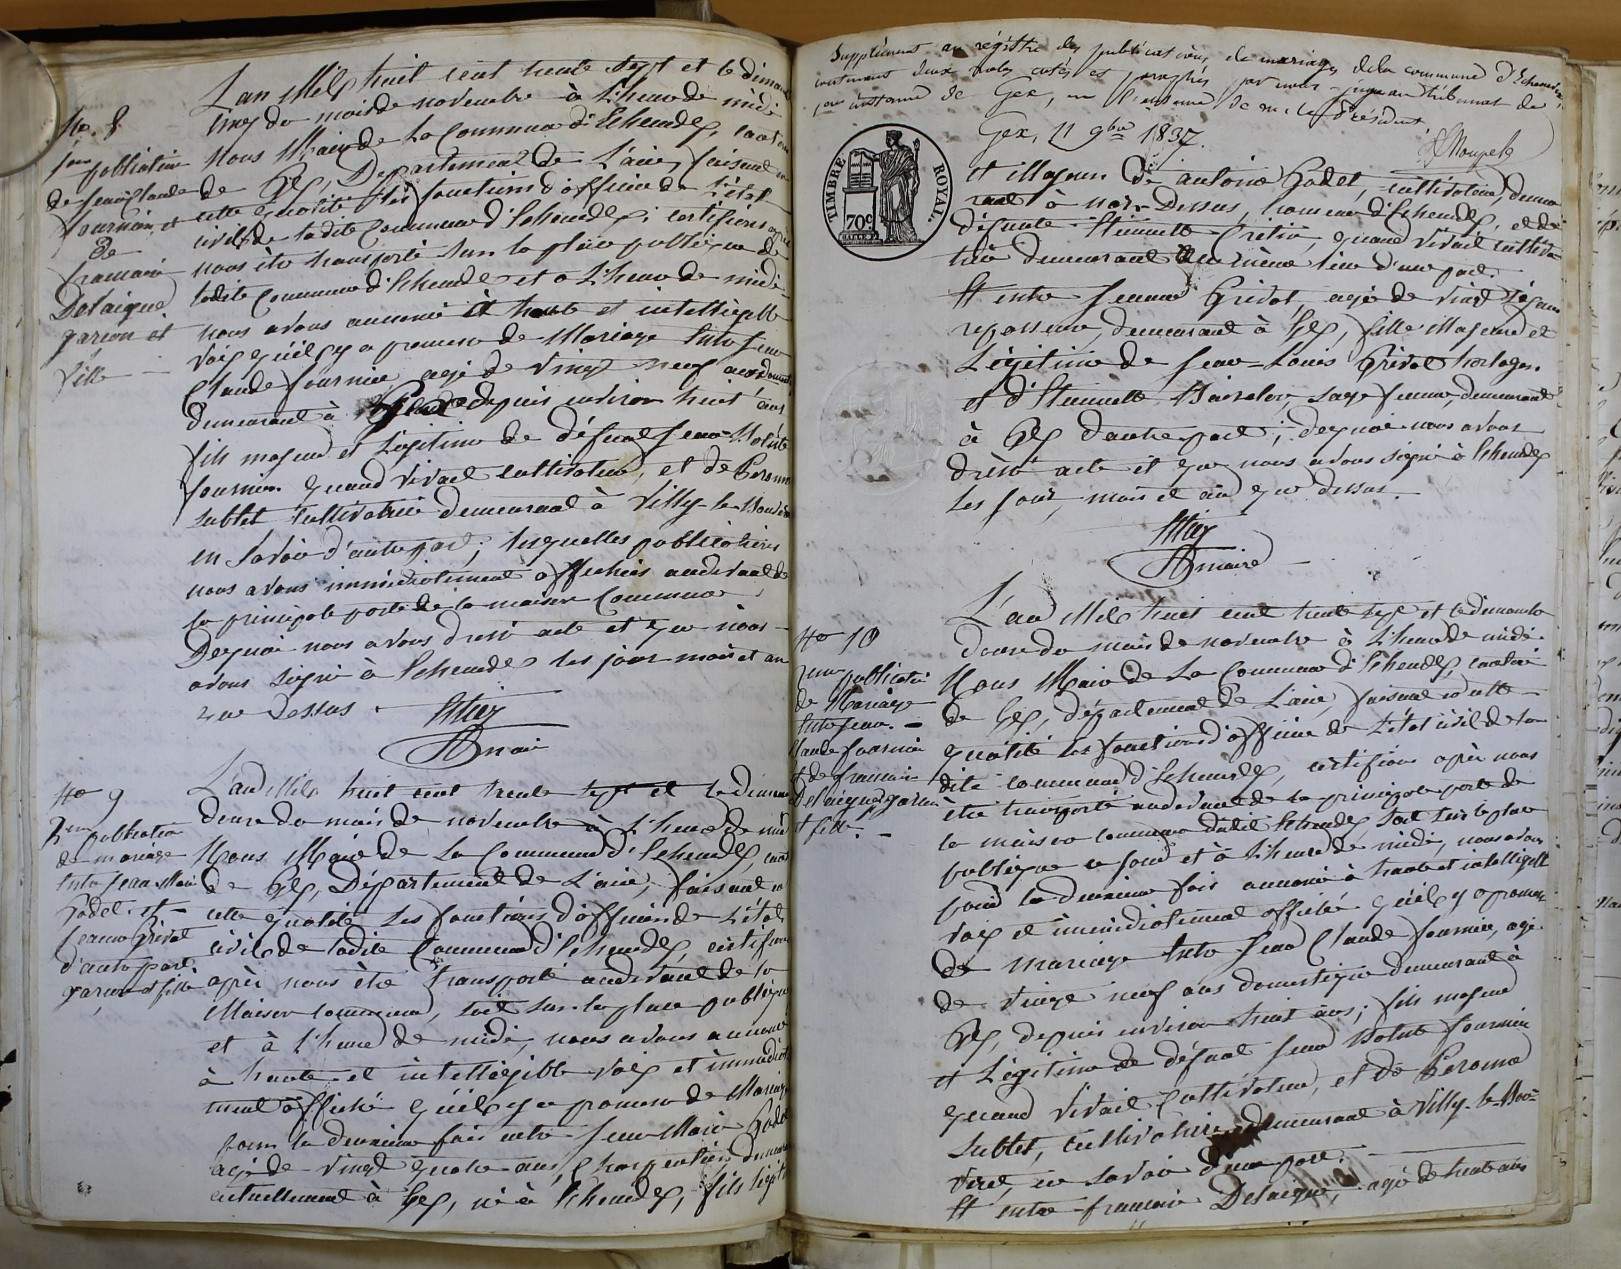 L'an Mil huit cent trente sept et le diman
cinq du mois de novembre à L'heure de midi
Nous Maire de La Commune d'Echenevex, canton
de Gex, Département de L'ain, faisant en
cette qualité les fonctions d'officier de L'état
civil de ladite Commune d'Echenevex, certifions
nous être transporté sur la place publique de
ladite Commune d'Echenevex et à L'heure de midi
nous avons annoncé à haute et intelligible
voix qu'il y a promesse de Mariage Entre Jean
Claude fournier, agé de vingt neuf ans
demeurant à Gex depuis environ huit ans
fils majeur et Légitime de défunt Jean
fournier quand vivait cultivateur, et de
Sublet Cultivatrice demeurant à Villy-le-
en Savoie d'autre part; lesquelles publications
nous avons immédiatement affichées audevant de
la principale porte de la maison Commune
Dequoi nous avons dressé acte et que nous
avons signé à Echenevex les jour mois et an
que Dessus
maire
No. 8
publication
de Jean Claude
fournier et
De
françoise
Delaigue
garçon et
fille
L'an Mil huit cent trente sept et le diman
douze du mois de novembre à L'heure de midi
Nous Maire de La Commune d'Echenevex, cant
de Gex, Département de L'ain, faisant en
cette qualité Les fonctions d'officier de L'état
civil de ladite Commune d'Echenevex, certifions
après nous être transporté audevant de la
Maison commune, soit sur la place publique
et à L'heure de midi, nous avons annoncé
à haute et intelligible voix et immédiat
ement affiché qu'il y a promesse de Mariage
pour la dernière fois entre Jean Marie Godet
agé de vingt quatre ans, Charpentier demeurant
actuellement à Gex, né à Echenevex, fils légit
No 9
2me publication
de mariage
Entre Jean Marie
Godet et
Jeanne Grivot
d'autre part
garçon et fille
Supplément au régistre des publications de mariages de la commune d'Echenevex
contenant deux cotés et paraphés par nous juge au tribunal de
instance de Gex, en l'absence de M. le Président
Gex, 11 9bre 1837.
TIMBRE ROYAL.
70c
et Majeur De antoine Godet, cultivateur, demeu
rant à Dessus, Commune d'Echenevex, et de
défunte Etiennette Cretin quand vivait cultiva
trice demeurant au même lieu d'une part.
Et entre Jeanne Grivot, agé de vingt
repasseuse, demeurant à Gex, fille Majeure et
Légitime de Jean-Louis Grivot horloger
et d'Etiennette sage femme, demeurant
à Gex d'autre part; dequoi nous avons
dréssé acte et que nous avons signé à Echenevex
Les jour, mois et an que dessus.
maire
L'an Mil huit cent trente sept et le dimanche
douze du mois de novembre à L'heure de midi.
Nous Maire de La Commune d'Echenevex, canton
de Gex, département de L'ain, faisant en cette
qualité les fonctions d'officier de L'état civil de la
dite commune d'Echenevex, certifions après nous
être transporté audevant de la principale porte de
la maison commune dudit Echenevex, soit sur la place
publique ce jour et à L'heure de midi, nous avons
pour la dernière fois annoncé à haute et intelligible
voix et immédiatement affiché qu'il y a promesse
de mariage Entre Jean Claude fournier, agé
de vingt neuf ans domestique demeurant à
Gex, depuis environ huit ans; fils majeur
et Légitime de défunt Jean fournier
quand vivait Cultivateur, et de
Sublet, Cultivatrice demeurant à Villy-le-Bou=
veret, en Savoie d'une part.
Et entre françoise Delaigue, agé de trente ans
No 10
publication
de Mariage
Entre Jean
Claude fournier
et de françoise
Delaigue garçon
et fille.